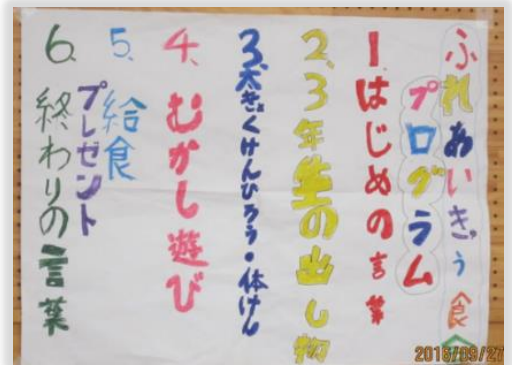 ふれあいきゅう食会
プログラム
1.はじめの言葉
2.3年生の出し物
3.太きょくけんひろう・体けん
4.むかし遊び
5.給食
プレゼント
6.終わりの言葉
2018/09/27